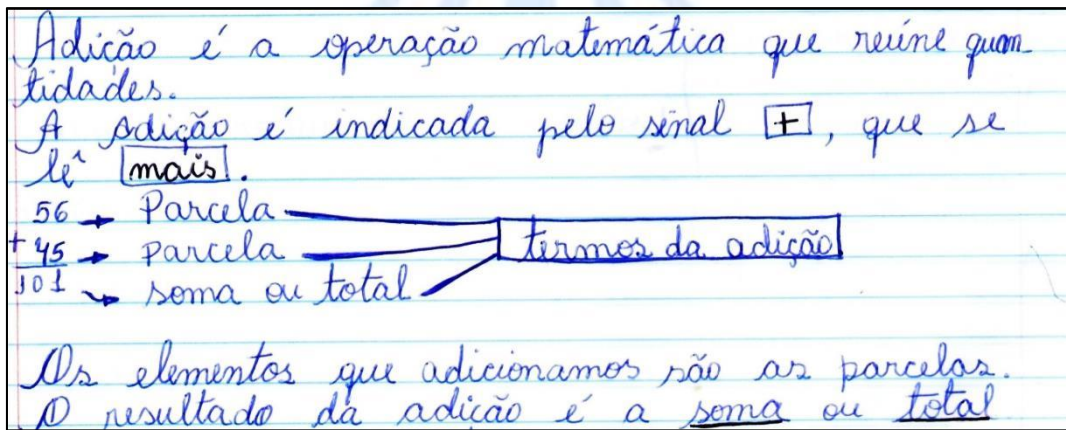 Adição é a operação matemática que reúne quan
tidades.
A Adição é indicada pelo sinal +, que se
lê mais.
56 → Parcela
+ 45 → Parcela termos da adição
101 → soma ou total
Os elementos que adicionamos são as parcelas.
O resultado da adição é a soma ou total